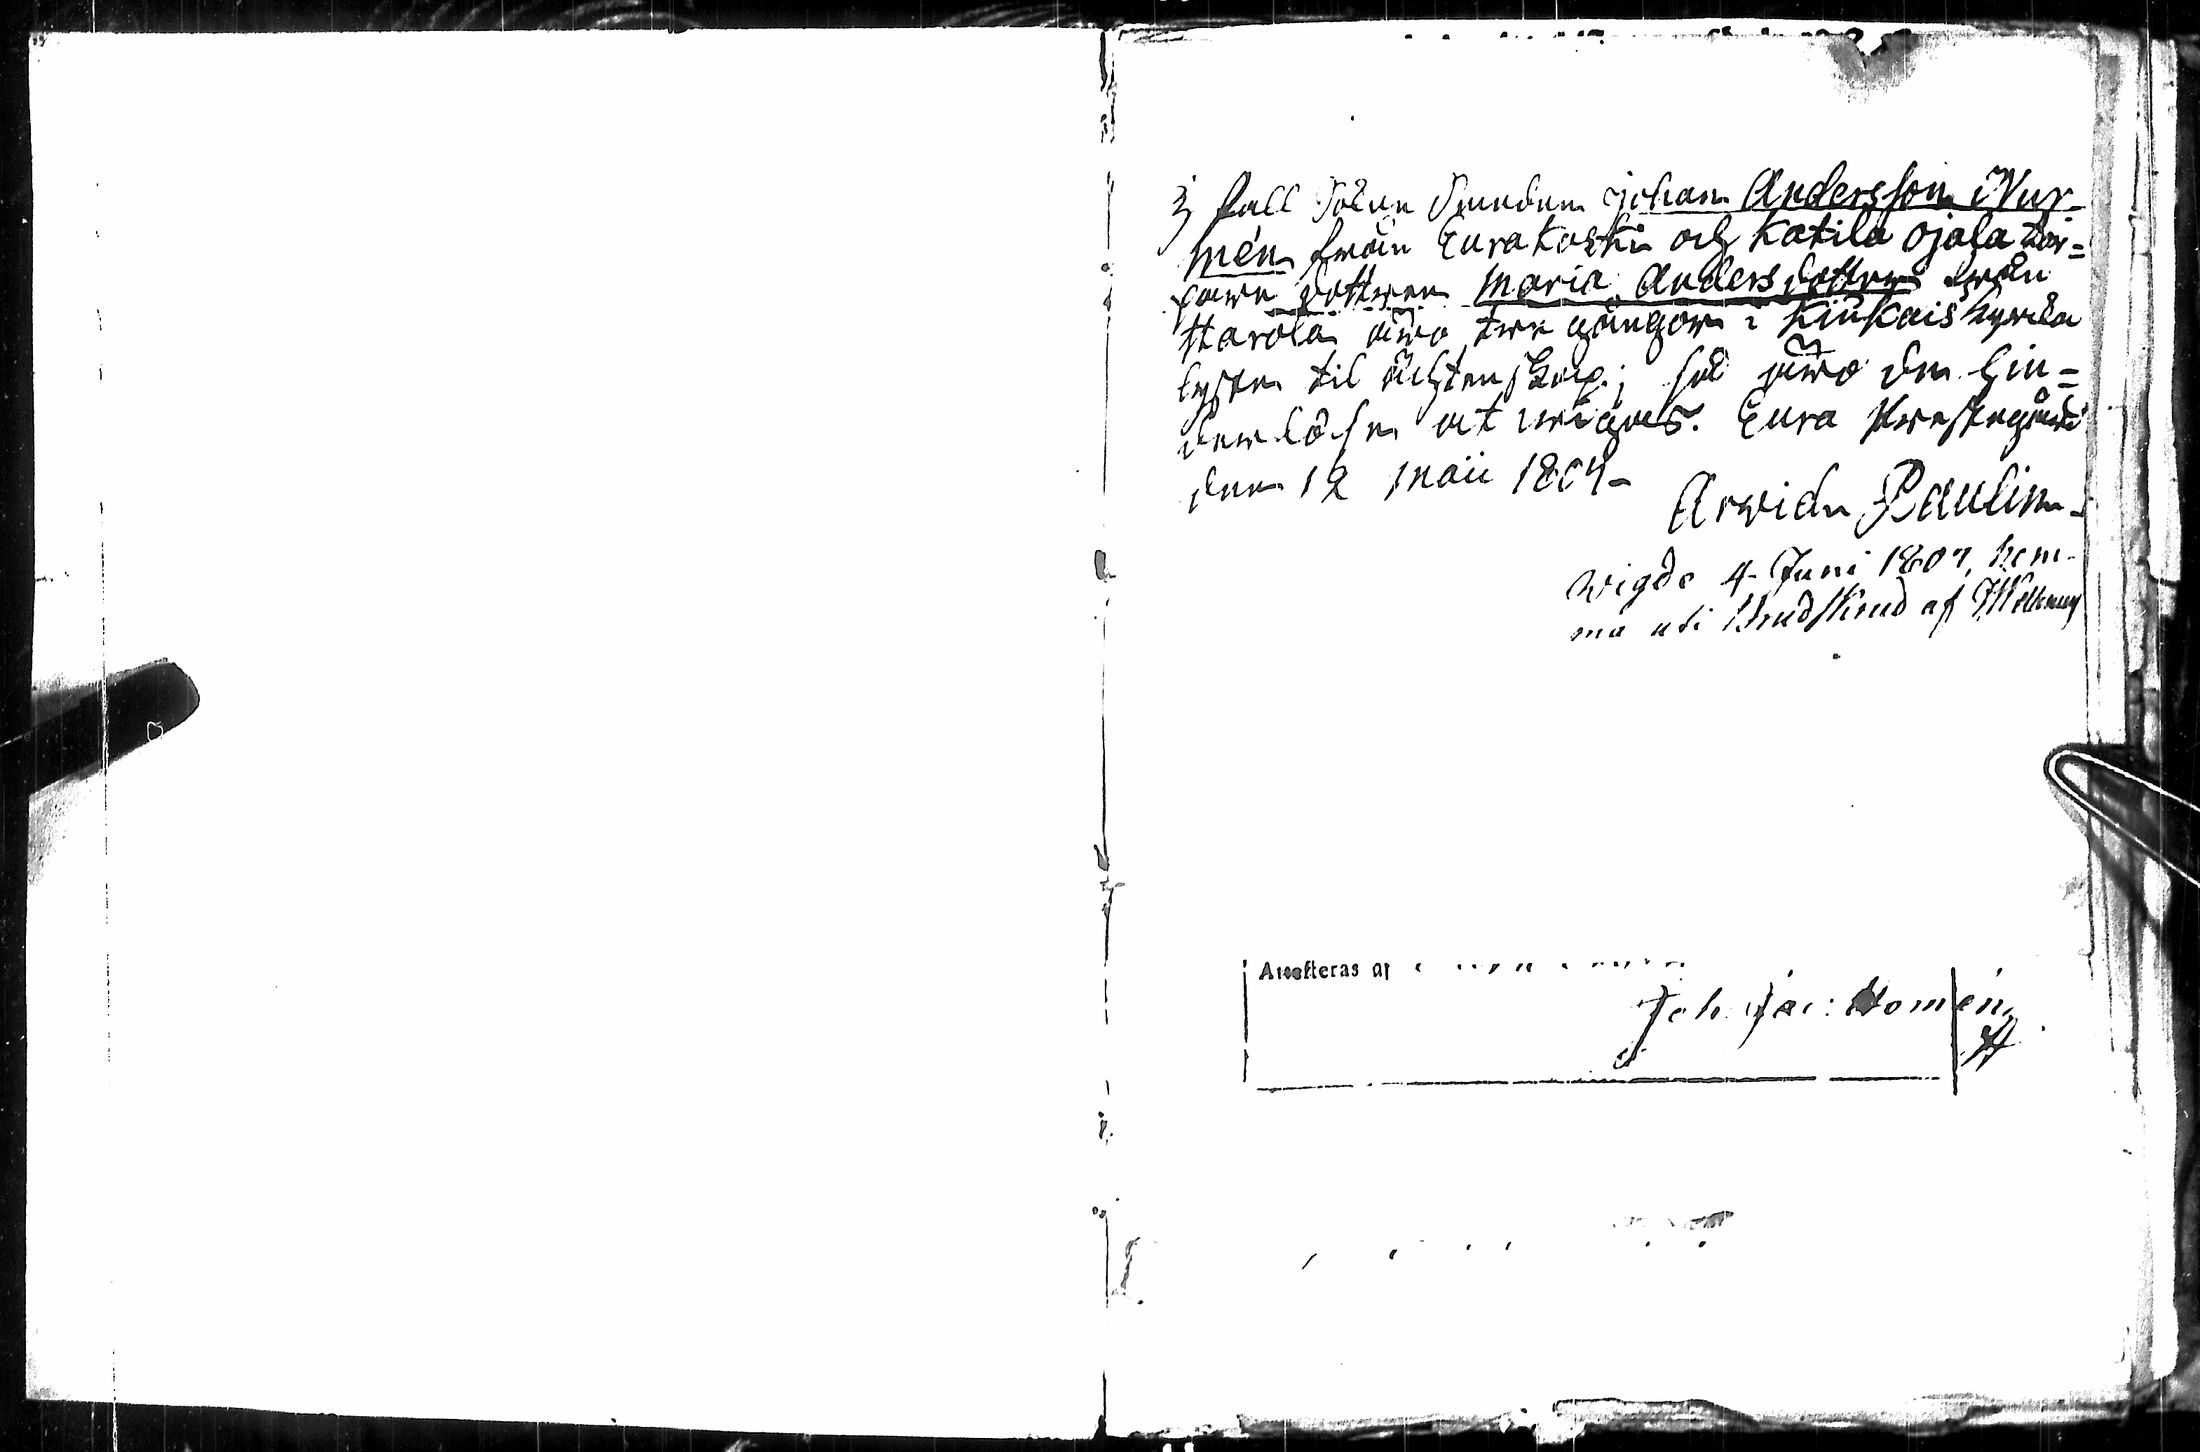 I fall Sokne Smeden Johan Andersson Nur-
mén från Eurakoski och Katila Ojala Tor=
pare dottren Maria Andersdotter från
Harola äro tre gångor i Kiukais kyrka
lyste til ächtenskap; så äro de hin=
derlöse at wigas. Eura Prestegård
den 12 Maii 1807-
Arvid Paulin
wigde 4 Juni 1807, hem-
ma uti Brudskrud af
Attesteras af
Joh: Jac: Nomén